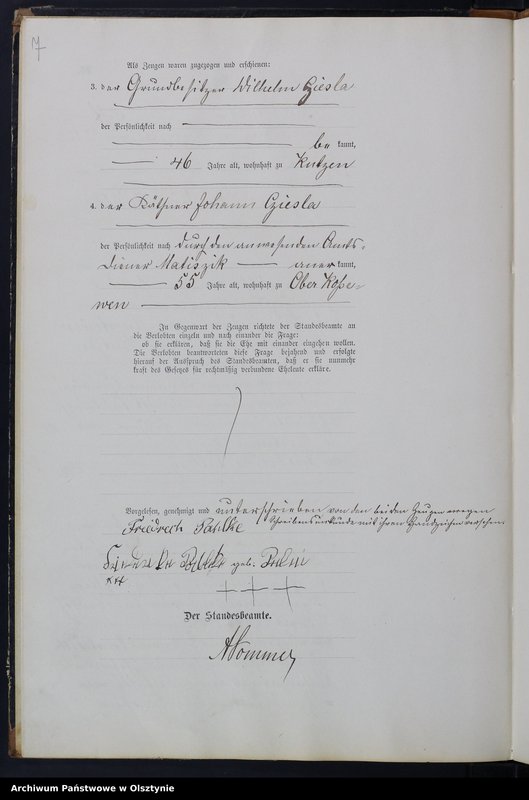 7
Als Zeugen waren zugezogen und erschienen:
3. der Grundbesitzer Wilhelm Cziesla
der Persönlichkeit nach
be kannt,
46 Jahre alt, wohnhaft zu Kutzen
4. der Käthner Johann Cziesla
der Persönlichkeit nach durch den anwesenden Amts-
diener Matiszik aner kannt,
55 Jahre alt, wohnhaft zu Ober Kosse-
wen
In Gegenwart der Zeugen richtete der Standesbeamte an
die Verlobten einzeln und nach einander die Frage:
ob sie erklären, daß sie die Ehe mit einander eingehen wollen.
Die Verlobten beantworteten diese Frage bejahend und erfolgte
hierauf der Ausspruch des Standesbeamten, daß er sie nunmehr
kraft des Gesetzes für rechtmäßig verbundene Eheleute erkläre.
Vorgelesen, genehmigt und unterschrieben von den beiden Zeugen wegen
Schreibensunkunde mit ihren Handzeichen versehen
Friedrech Pahlke
geb.
+++
+ + +
Der Standesbeamte.
Sommer
Archiwum Państwowe w Olsztynie